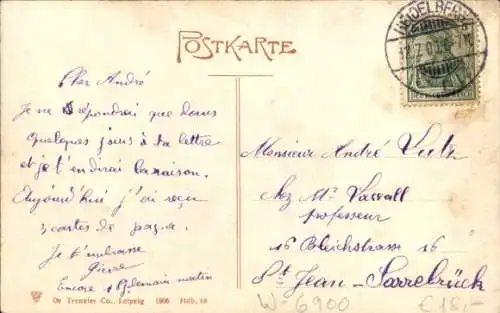 POSTKARTE
HEIDELBERG
Cher André
Je ne répondrai que dans
quelques jours à ta lettre
et je t'en dirai la raison.
Aujourd'hui j'ai reçu
3 cartes de papa.
Je t'embrasse
Pierre
Encore 1 St Germain matin
Monsieur André
chez Mr
professeur
16 Bleichstrasse 16
St Jean - Sarrebrück
W-6900 €18,-
Dr Trenkler Co., Leipzig 1906 Hdlb. 18